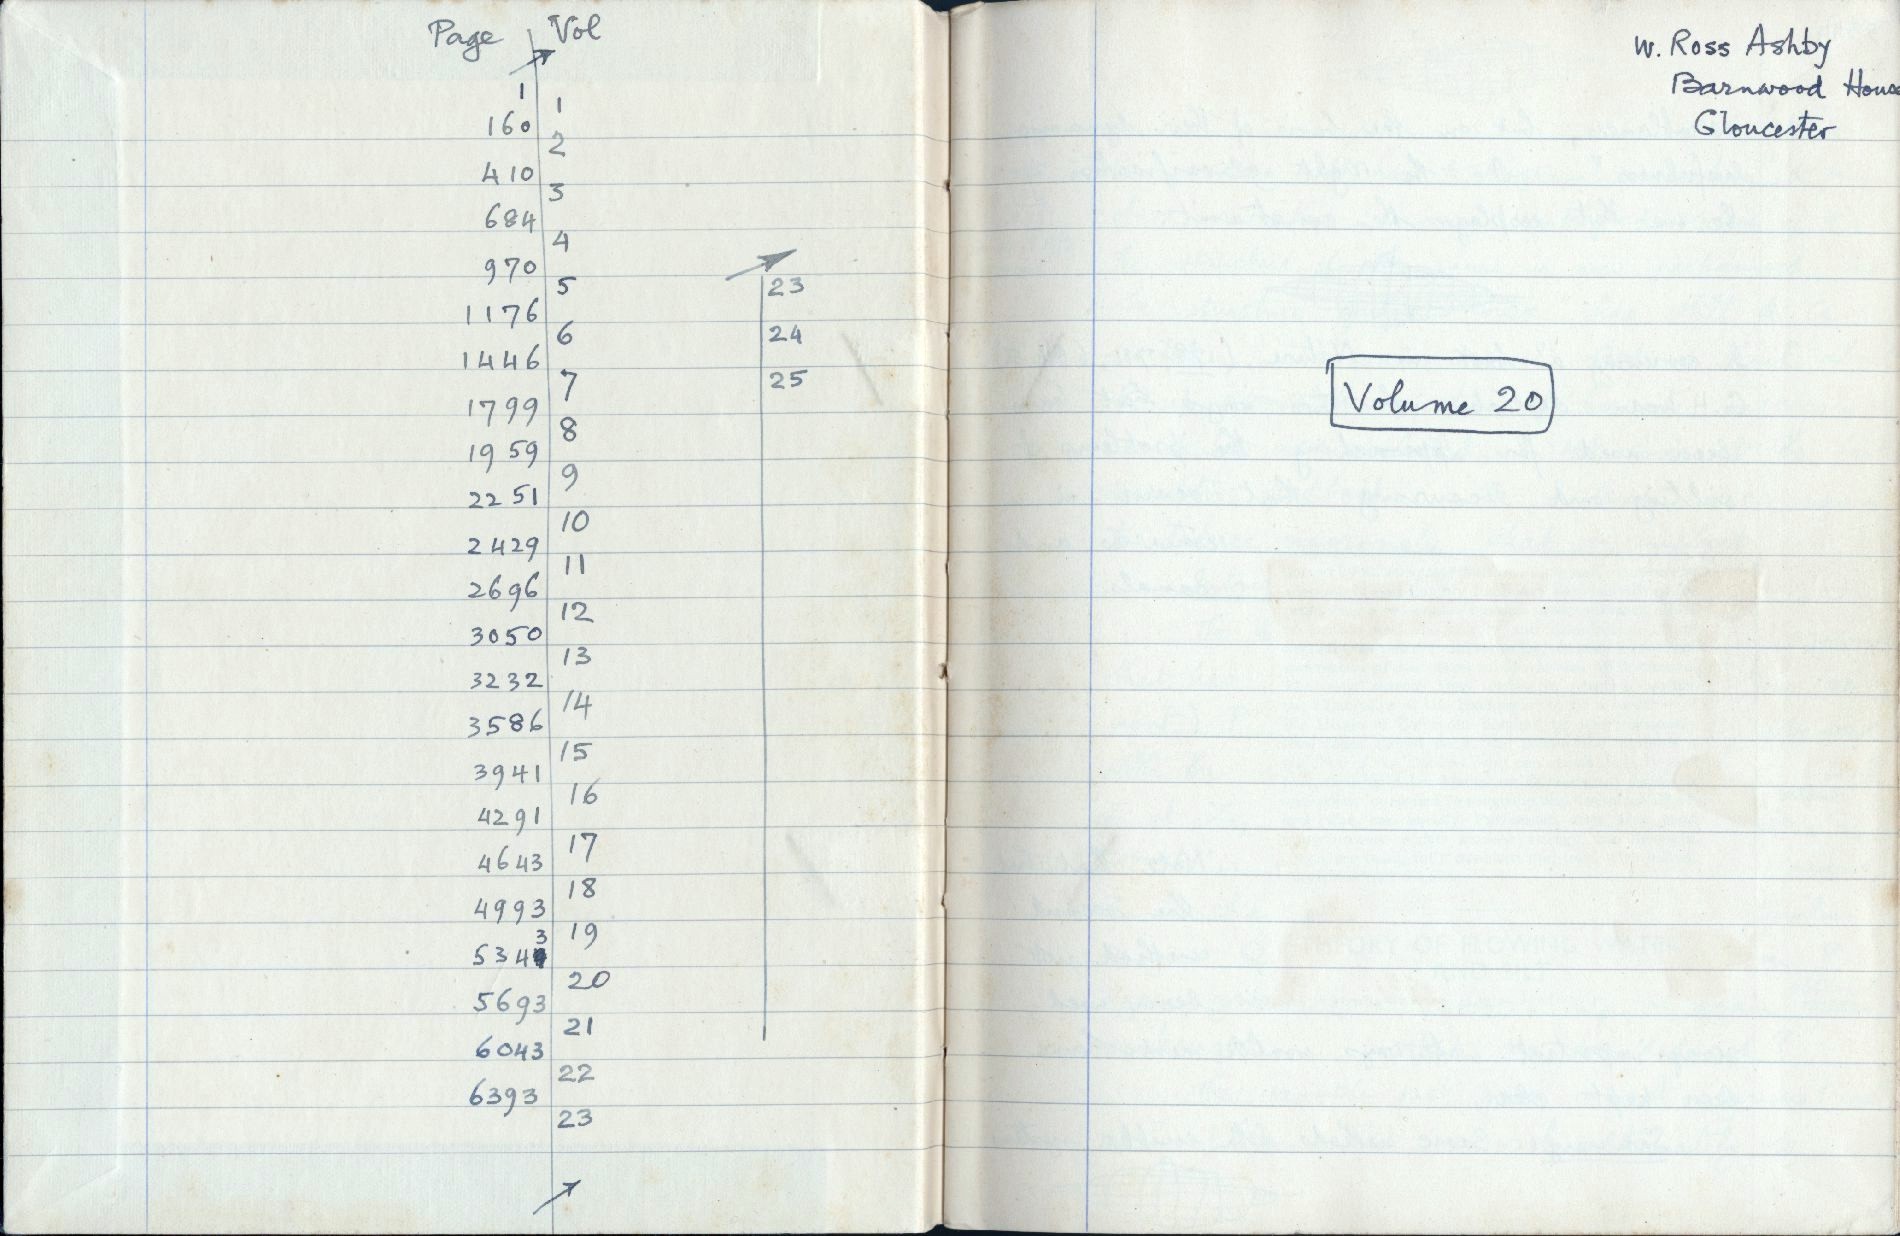 Page Vol
1
1
160
2
410
3
684
4
970
5
1176
6
1446
7
1799
8
1959
9
2251
10
2429
11
2696
12
3050
13
3232
14
3586
15
3941
16
4291
17
4643
18
4993
19
3
534
20
5693
21
6043
22
6393
23
23
24
25
W. Ross Ashby
Barnwood House
Gloucester
Volume 20